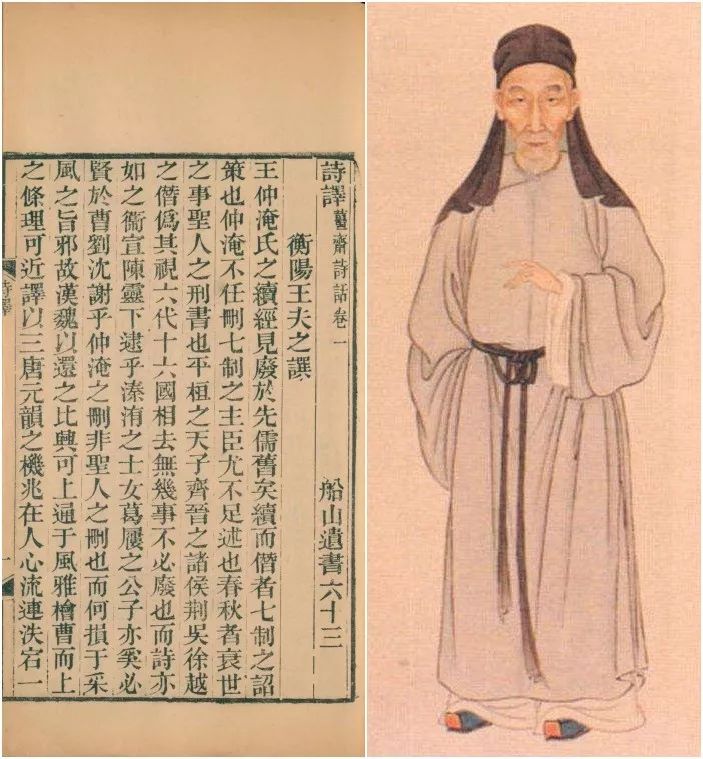 詩譯 薑齋詩話卷一 船山遺書六十三
衡陽王夫之譔
王仲淹氏之續經見廢於先儒舊矣續而僭者七制之詔
策也仲淹不任刪七制之主臣尤不足述也春秋者衰世
之事聖人之刑書也平桓之天子齊晉之諸侯荆吳徐越
之僭僞其視六代十六國相去無幾事不必廢也而詩亦
如之衞宣陳靈下逮乎溱洧之士女葛屨之公子亦奚必
賢於曹劉沈謝乎仲淹之刪非聖人之刪也而何損于采
風之旨邪故漢魏以還之比興可上通于風雅檜曹而上
之條理可近譯以三唐元韻之機兆在人心流連泆宕一
詩譯
一